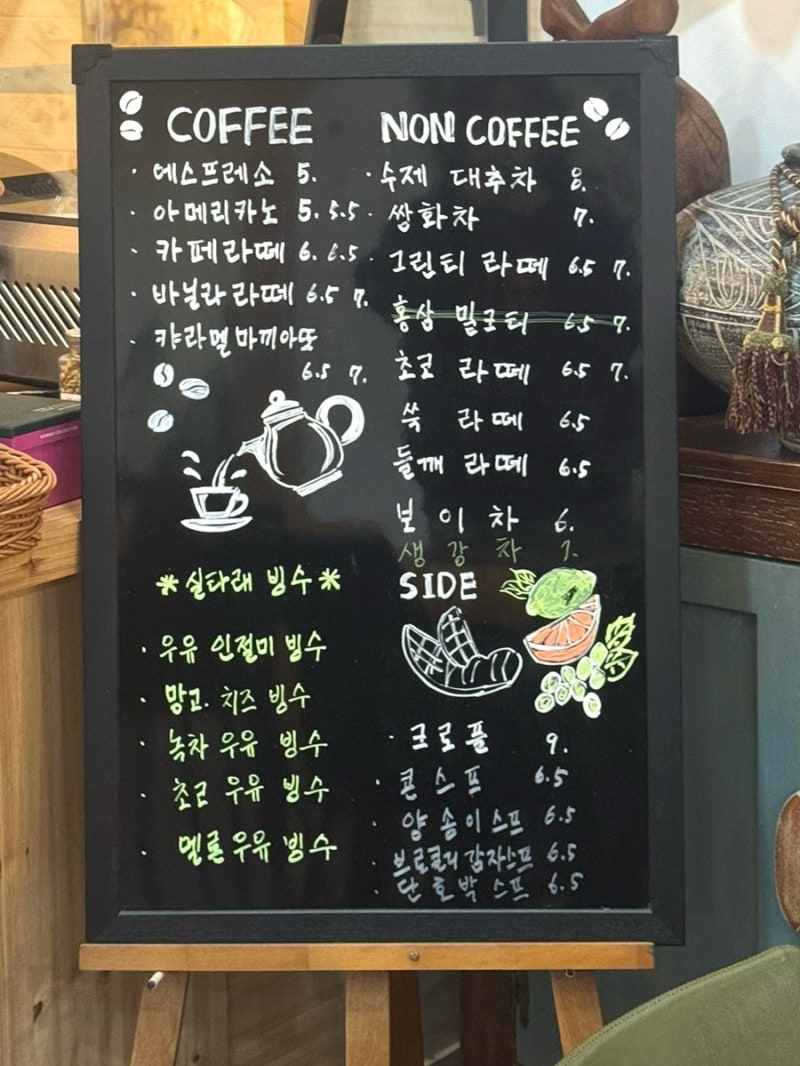 COFFEE
· 에스프레소 5.
· 아메리카노 5. 5.5
· 카페라떼 6. 6.5
· 바닐라라떼 6.5 7.
· 캬라멜마끼아또
6.5 7.
*실타래 빙수*
· 우유 인절미 빙수
· 망고. 치즈 빙수
· 녹차 우유 빙수
· 초코 우유 빙수
· 멜론우유 빙수
NON COFFEE
· 수제 대추차 8.
· 쌍화차 7.
· 그린티 라떼 6.5 7.
홍삼 밀크티 6.5 7.
초코 라떼 6.5 7.
쑥 라떼 6.5
들깨 라떼 6.5
보이차 6.
생강차 7.
SIDE
· 크로플 9.
· 콘스프 6.5
· 양송이스프 6.5
· 브로콜리감자스프 6.5
· 단호박스프 6.5